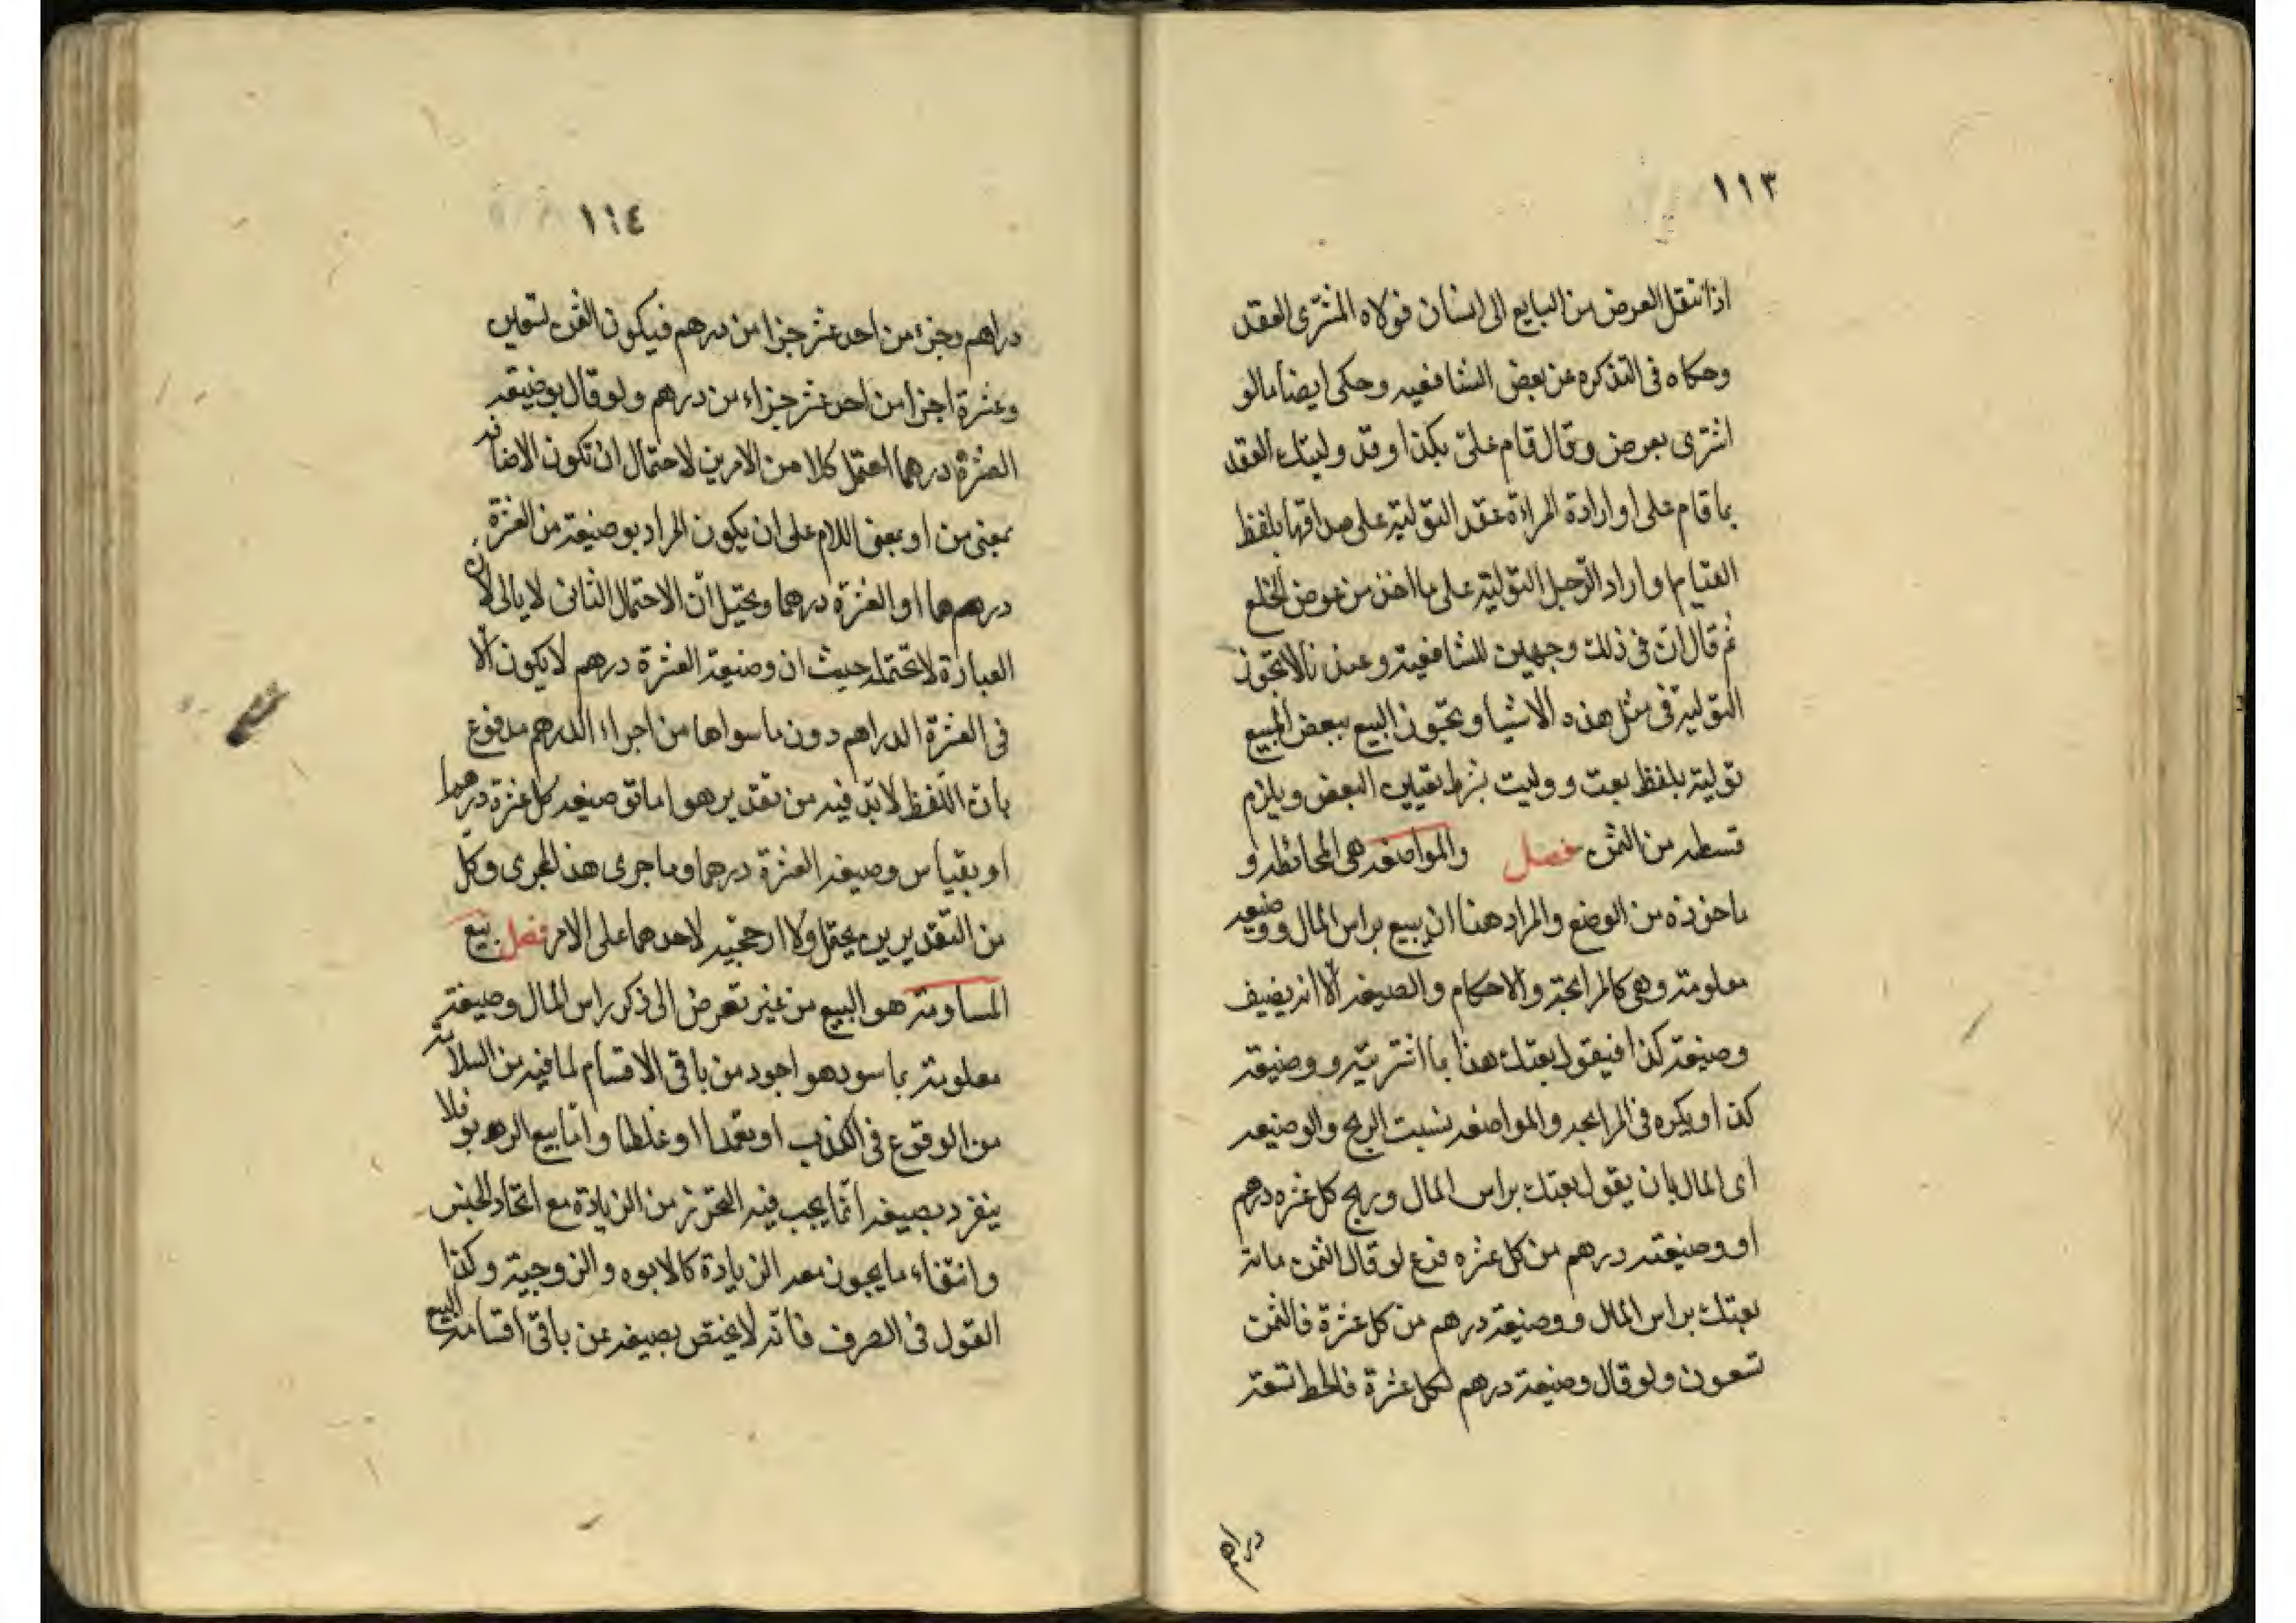 ١١٣
اذا انتقل العرض من البايع الى انسان فولاه المشترى العقد
وحكاه فى التذكره عن بعض الشافعيه وحكى ايضا ما لو
اشترى بعرض وقال قام علىّ بكذا وقد وليتك العقد
بما قام على او ارادة المراءة عقد التولية على صداقها بلفظ
القيام او اراد الرجل التولية على ما اخذ من عوض الخلع
ثم قال انّ فى ذلك وجهين للشافعية وعندنا لا تجوز
التولية فى مثل هذه الاشيا ويجوز البيع ببعض المبيع
تولية بلفظ بعت ووليت بشرط تعيين البعض ويلزم
قسطه من الثمن فصل والمواضعه هى المحاطه و
ماخوذه من الوضع والمراد هنا ان يبيع براس المال ووضيعه
معلومة وهى كالمرابحة والاحكام والصيغه الّا انه يضيف
وضيعة كذا فيقول بعتك هذا بما اشتريته ووضيعة
كذا ويكره فى المرابحه والمواضعه نسبت الربح والوضيعه
اى المال بان يقول بعتك براس المال وربح كل عشره درهم
او وضيعته درهم من كل عشره فرع لو قال الثمن مائة
بعتك براس المال ووضيعة درهم من كل عشرة فالثمن
تسعون ولو قال وضيعة درهم لكل عشرة فالحط تسعة
دراهم
١١٤
دراهم وجزء من احد عشر جزا من درهم فيكون الثمن تسعين
وعشرة اجزا من احد عشر جزاء من درهم ولو قال بوضيعة
العشرة درهما احتمل كلا من الامرين لاحتمال ان تكون الاضافه
بمعنى من او بمعنى اللام على ان يكون المراد بوضيعة من العشرة
درهما او العشرة درهما ويحتمل انّ الاحتمال الثانى لا ياتى لانّ
العبارة لا تحتمله حيث ان وضيعة العشرة درهم لا يكون الّا
فى العشرة الدراهم دون ما سواها من اجزاء الدرهم مدفوع
بانّ اللّفظ لا بدّ فيه من تقدير هو اما توضيعه كل عشرة درهما
او بقياس وضيعه العشرة درهما وما جرى هذا المجرى وكل
من التقديرين يحتمل ولا ارجحيه لاحدهما على الامر فصل بيع
المساومة هو البيع من غير تعرض الى ذكر راس المال وصيغة
معلومة بما سو وهو اجود من باقى الاقسام لما فيه من السلامة
من الوقوع فى الكذب او تعمدا او غلطا وامّا بيع الربوبو فلا
ينفرد بصيغه انّما يجب فيه التحرّز من الزيادة مع اتحاد الجنس
وانتفاء ما يجوز معه الزيادة كالابوه والزوجية وكذا
القول فى الصرف فانّه لا يختص بصيغه عن باقى اقسامه البيع